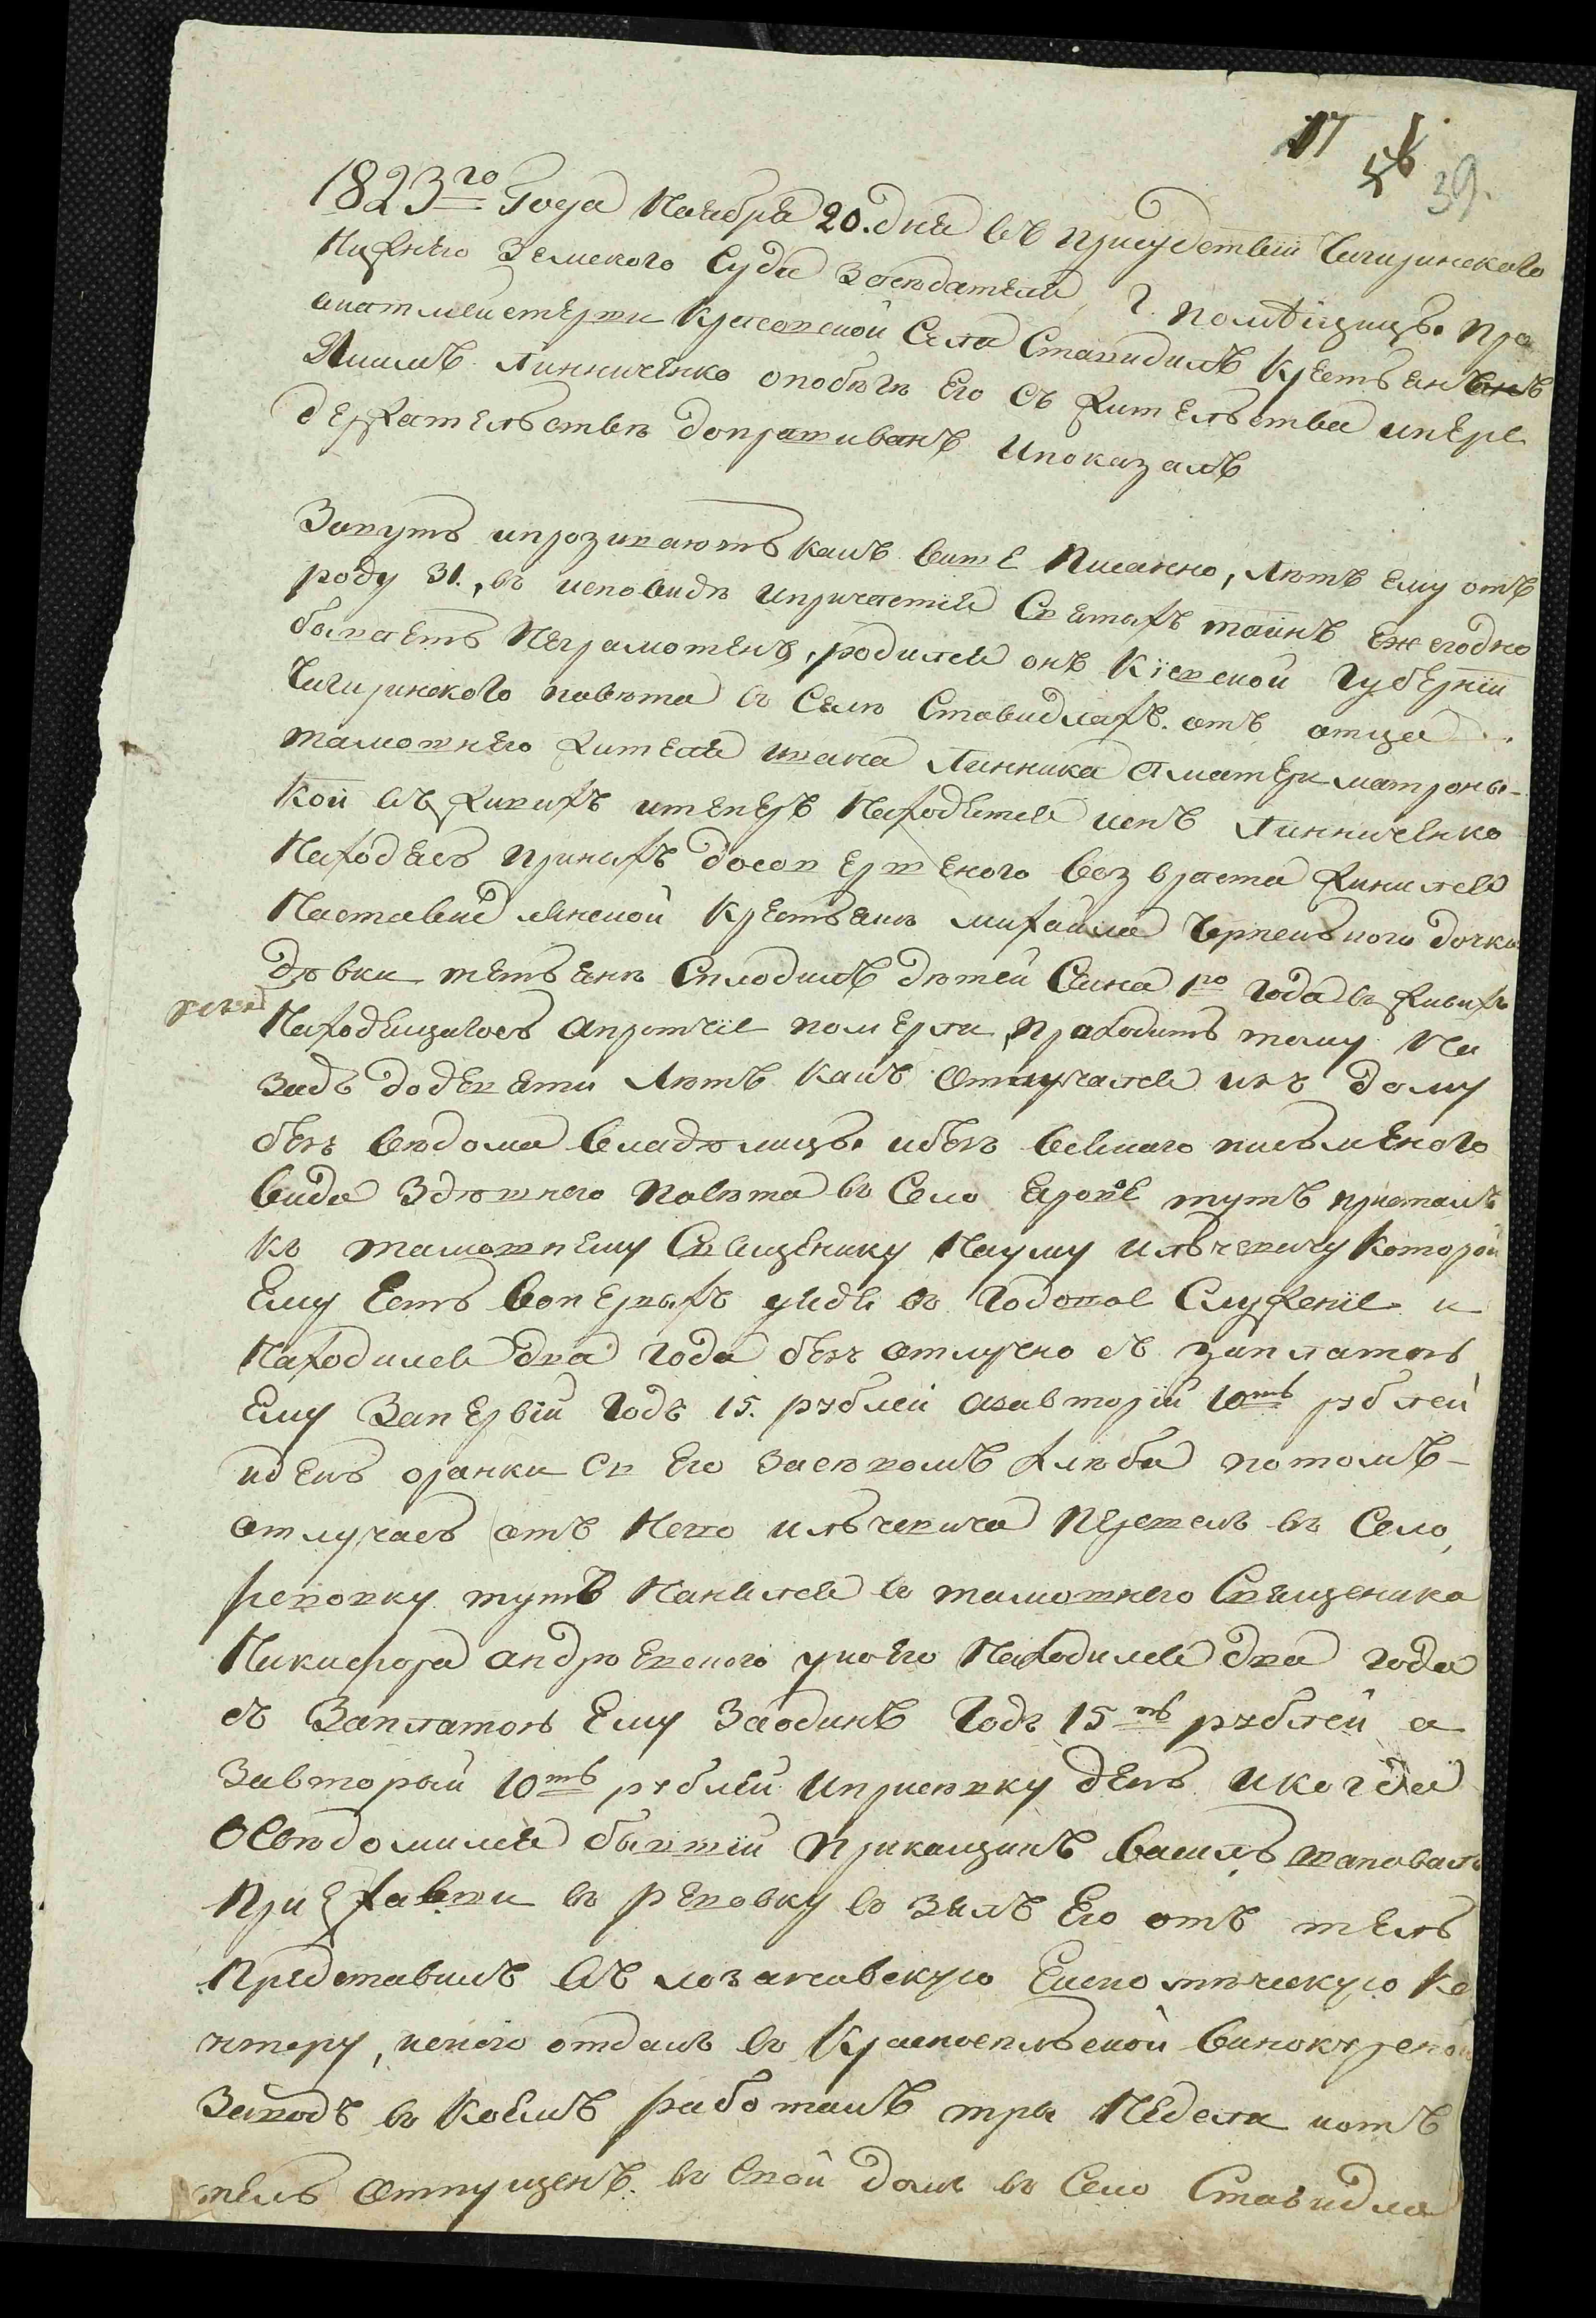 17 56 39.
1823го Года Ноября 20. дня въ присудствіи Чигиринского
Нижнего Земского Суда Заседателя, г. помѣщицы. Пра
Красовской Села Ставидлъ Крестьянинъ
Якимъ Линниченко опобѣгѣ Его съ жительства ипере
держательствѣ допрашиванъ Ипоказалъ
Зовутъ ипрозиваютъ какъ више Писанно, лѣтъ ему отъ
роду 31., въ исповидѣ ипричастия Святыхъ таинъ ежегодно
бываетъ Неграмотенъ, родился онъ Кіевской Губерніи
Чигиринского повѣта въ Селѣ Ставидлахъ. отъ отца
тамошнего жителя ивана Линника Аматери матроны-
Кои въ живихъ итеперъ Находятся иенъ Линниченко
Находясъ принихъ досовершеного возвраста жинился
Наставидлянской Крестьянки михайла Черненького дочки
дѣвки тетьяни Сплодилъ дѣтей Сина 1го года въ живихъ
Находящагось апротчіе померли, праходитъ тому На
задъ додевяти лѣтъ какъ отлучался изъ дому
безъ вѣдома владѣлицы. ибезъ всякаго письменого
вида Здѣшнего Повѣта въ Село туттъ присталъ
къ тамошнему Священику Науму ильчевичу Которой
Ему Естъ вопервыхъ дядя въ Годовое Служеніе и
Находился два года безъ отлучно съ заплатою
Ему Заперьвій Годъ 15. рублей азавторій 10ть рублей
иденъ оранки св Его засѣвомъ хлѣба потомъ-
отлучась отъ Него ильчевича Перешелъ въ Село,
ревовку тутъ Нанялся въ тамошнего Священика
Никифора андріевского укоего Находился два года
съ Заплатою Ему Заодинъ Годъ 15ть рублей а
Завторый 10ть рублей Иприсѣвку денъ икогда
Освѣдомился бывшій Прикащикъ василъ шаповалъ
Приехавши въ ревовку взялъ Его отъ толь
Представилъ въ лозановскую Екено мическую Ко
нтору, ионого отдалъ въ Красносельской винокуреной
Заводъ въ Коемъ работалъ три Недели иотъ
толь отпущенъ. въ свой домъ въ Село Ставидла